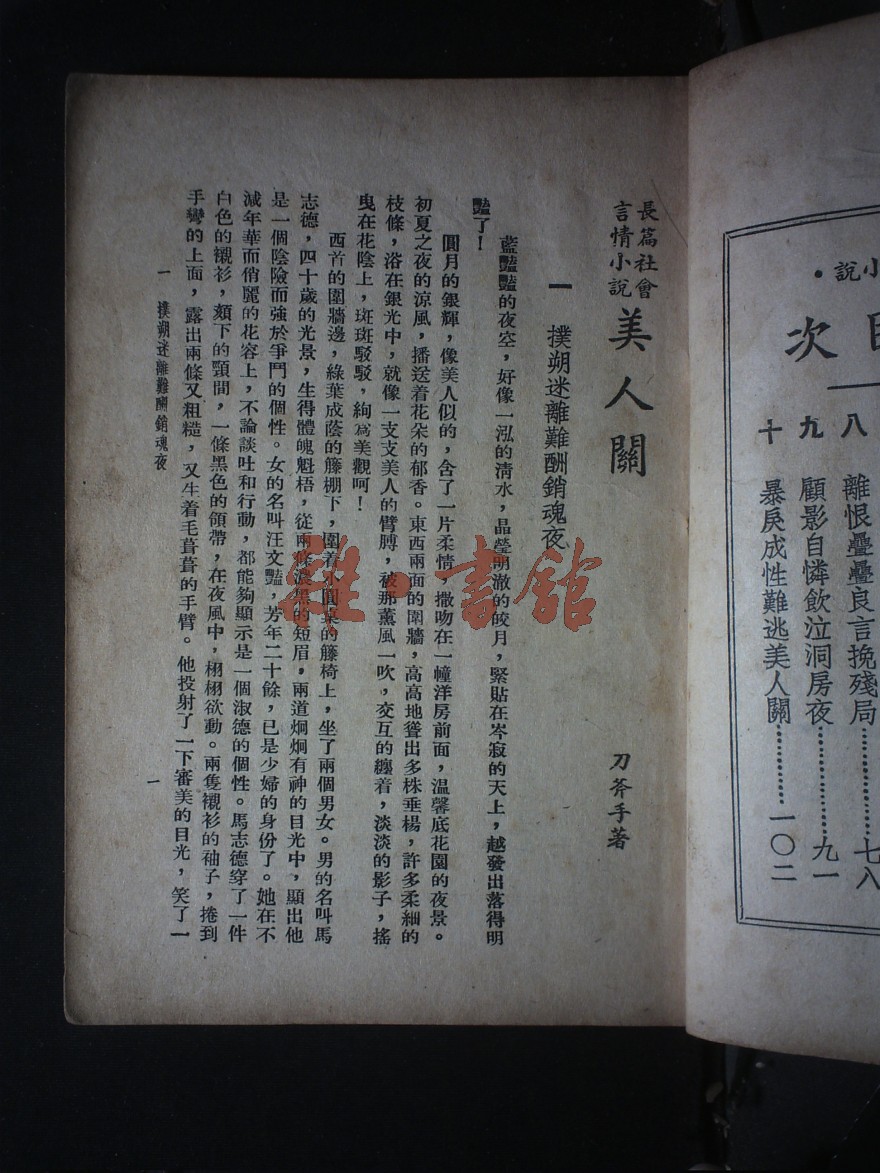 小說・
目次
八 離恨疊疊良言挽殘局…………七八
九 顧影自憐飲泣洞房夜…………九一
十 暴戾成性難逃美人關…………一〇二
長篇社會
言情小說
美人關
刀斧手著
一 撲朔迷離難酬銷魂夜
藍豔豔的夜空，好像一泓的淸水，晶瑩明澈的皎月，緊貼在岑寂的天上，越發出落得明
豔了！
圓月的銀輝，像美人似的，含了一片柔情，撒吻在一幢洋房前面，溫馨底花園的夜景。
初夏之夜的涼風，播送着花朵的郁香。東西兩面的圍牆，高高地聳出多株垂楊，許多柔細的
枝條，浴在銀光中，就像一支支美人的臂膊，被那薰風一吹，交互的纏着，淡淡的影子，搖
曳在花陰上，斑斑駁駁，絢爲美觀呵！
西首的圍牆邊，綠葉成蔭的籐棚下，圍着小圓桌的籐椅上，坐了兩個男女。男的名叫馬
志德，四十歲的光景，生得體魄魁梧，從兩條濃黑的短眉，兩道炯炯有神的目光中，顯出他
是一個陰險而強於爭鬥的個性。女的名叫汪文豔，芳年二十餘，已是少婦的身份了。她在不
減年華而俏麗的花容上，不論談吐和行動，都能夠顯示是一個淑德的個性。馬志德穿了一件
白色的襯衫，頦下的頸間，一條黑色的領帶，在夜風中，栩栩欲動。兩隻襯衫的袖子，捲到
手彎的上面，露出兩條又粗糙，又生着毛葺葺的手臂。他投射了一下審美的目光，笑了一
一 撲朔迷離難酬銷魂夜
一
雜・書館